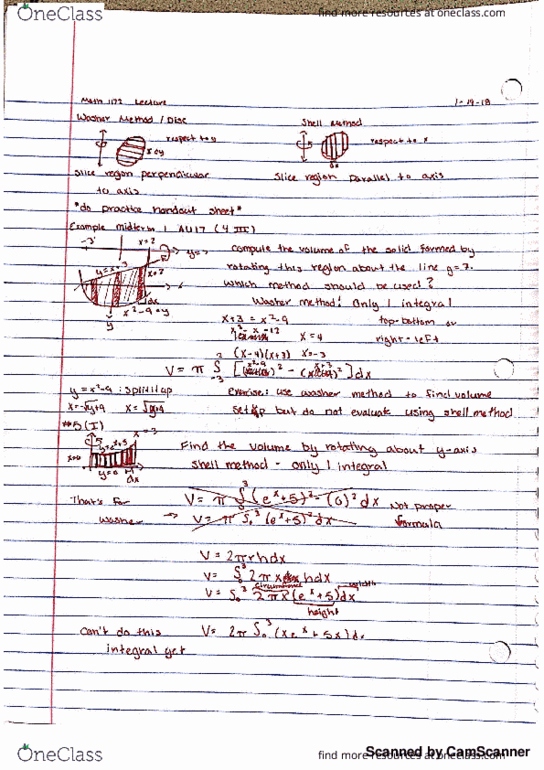 OneClass
find more resources at oneclass.com
Math 1172 Lecture
1-19-18
Washer Method / Disc
Shell Method
respect to y
respect to x
slice region perpendicular
to axis
Slice region parallel to axis
*do practice handout sheet*
Example midterm 1 AU17 (4 III)
-3 x=2
y=7
y=x+3
x=2
dx
x²-9=y
y
compute the volume of the solid formed by
rotating this region about the line y=7.
which method should be used?
Washer method! Only 1 integral
x+3 = x²-9
top-bottom or
x²-x=12
x=4
right-left
(x-4)(x+3) x=-3
V = π ∫
y = x²-9 : split it up
x=-√y+9 x=√y+9
exercise: use washer method to find volume
setup but do not evaluate using shell method
#5 (I)
x=3
x=0
y=0
dx
Find the volume by rotating about y-axis
shell method - only 1 integral
That's for
washer →
V = π ∫₀³ (eˣ+5)² - (0)² dx
V = π ∫₀³ (eˣ+5)² dx
Not proper
formula
V = 2πrhdx
V = ∫₀³ 2πx hdx
V = ∫₀³ 2πx (eˣ+5)dx
height
Can't do this
integral yet
V = 2π ∫₀³ (xeˣ+5x)dx
OneClass
find more resources at oneclass.com
Scanned by CamScanner